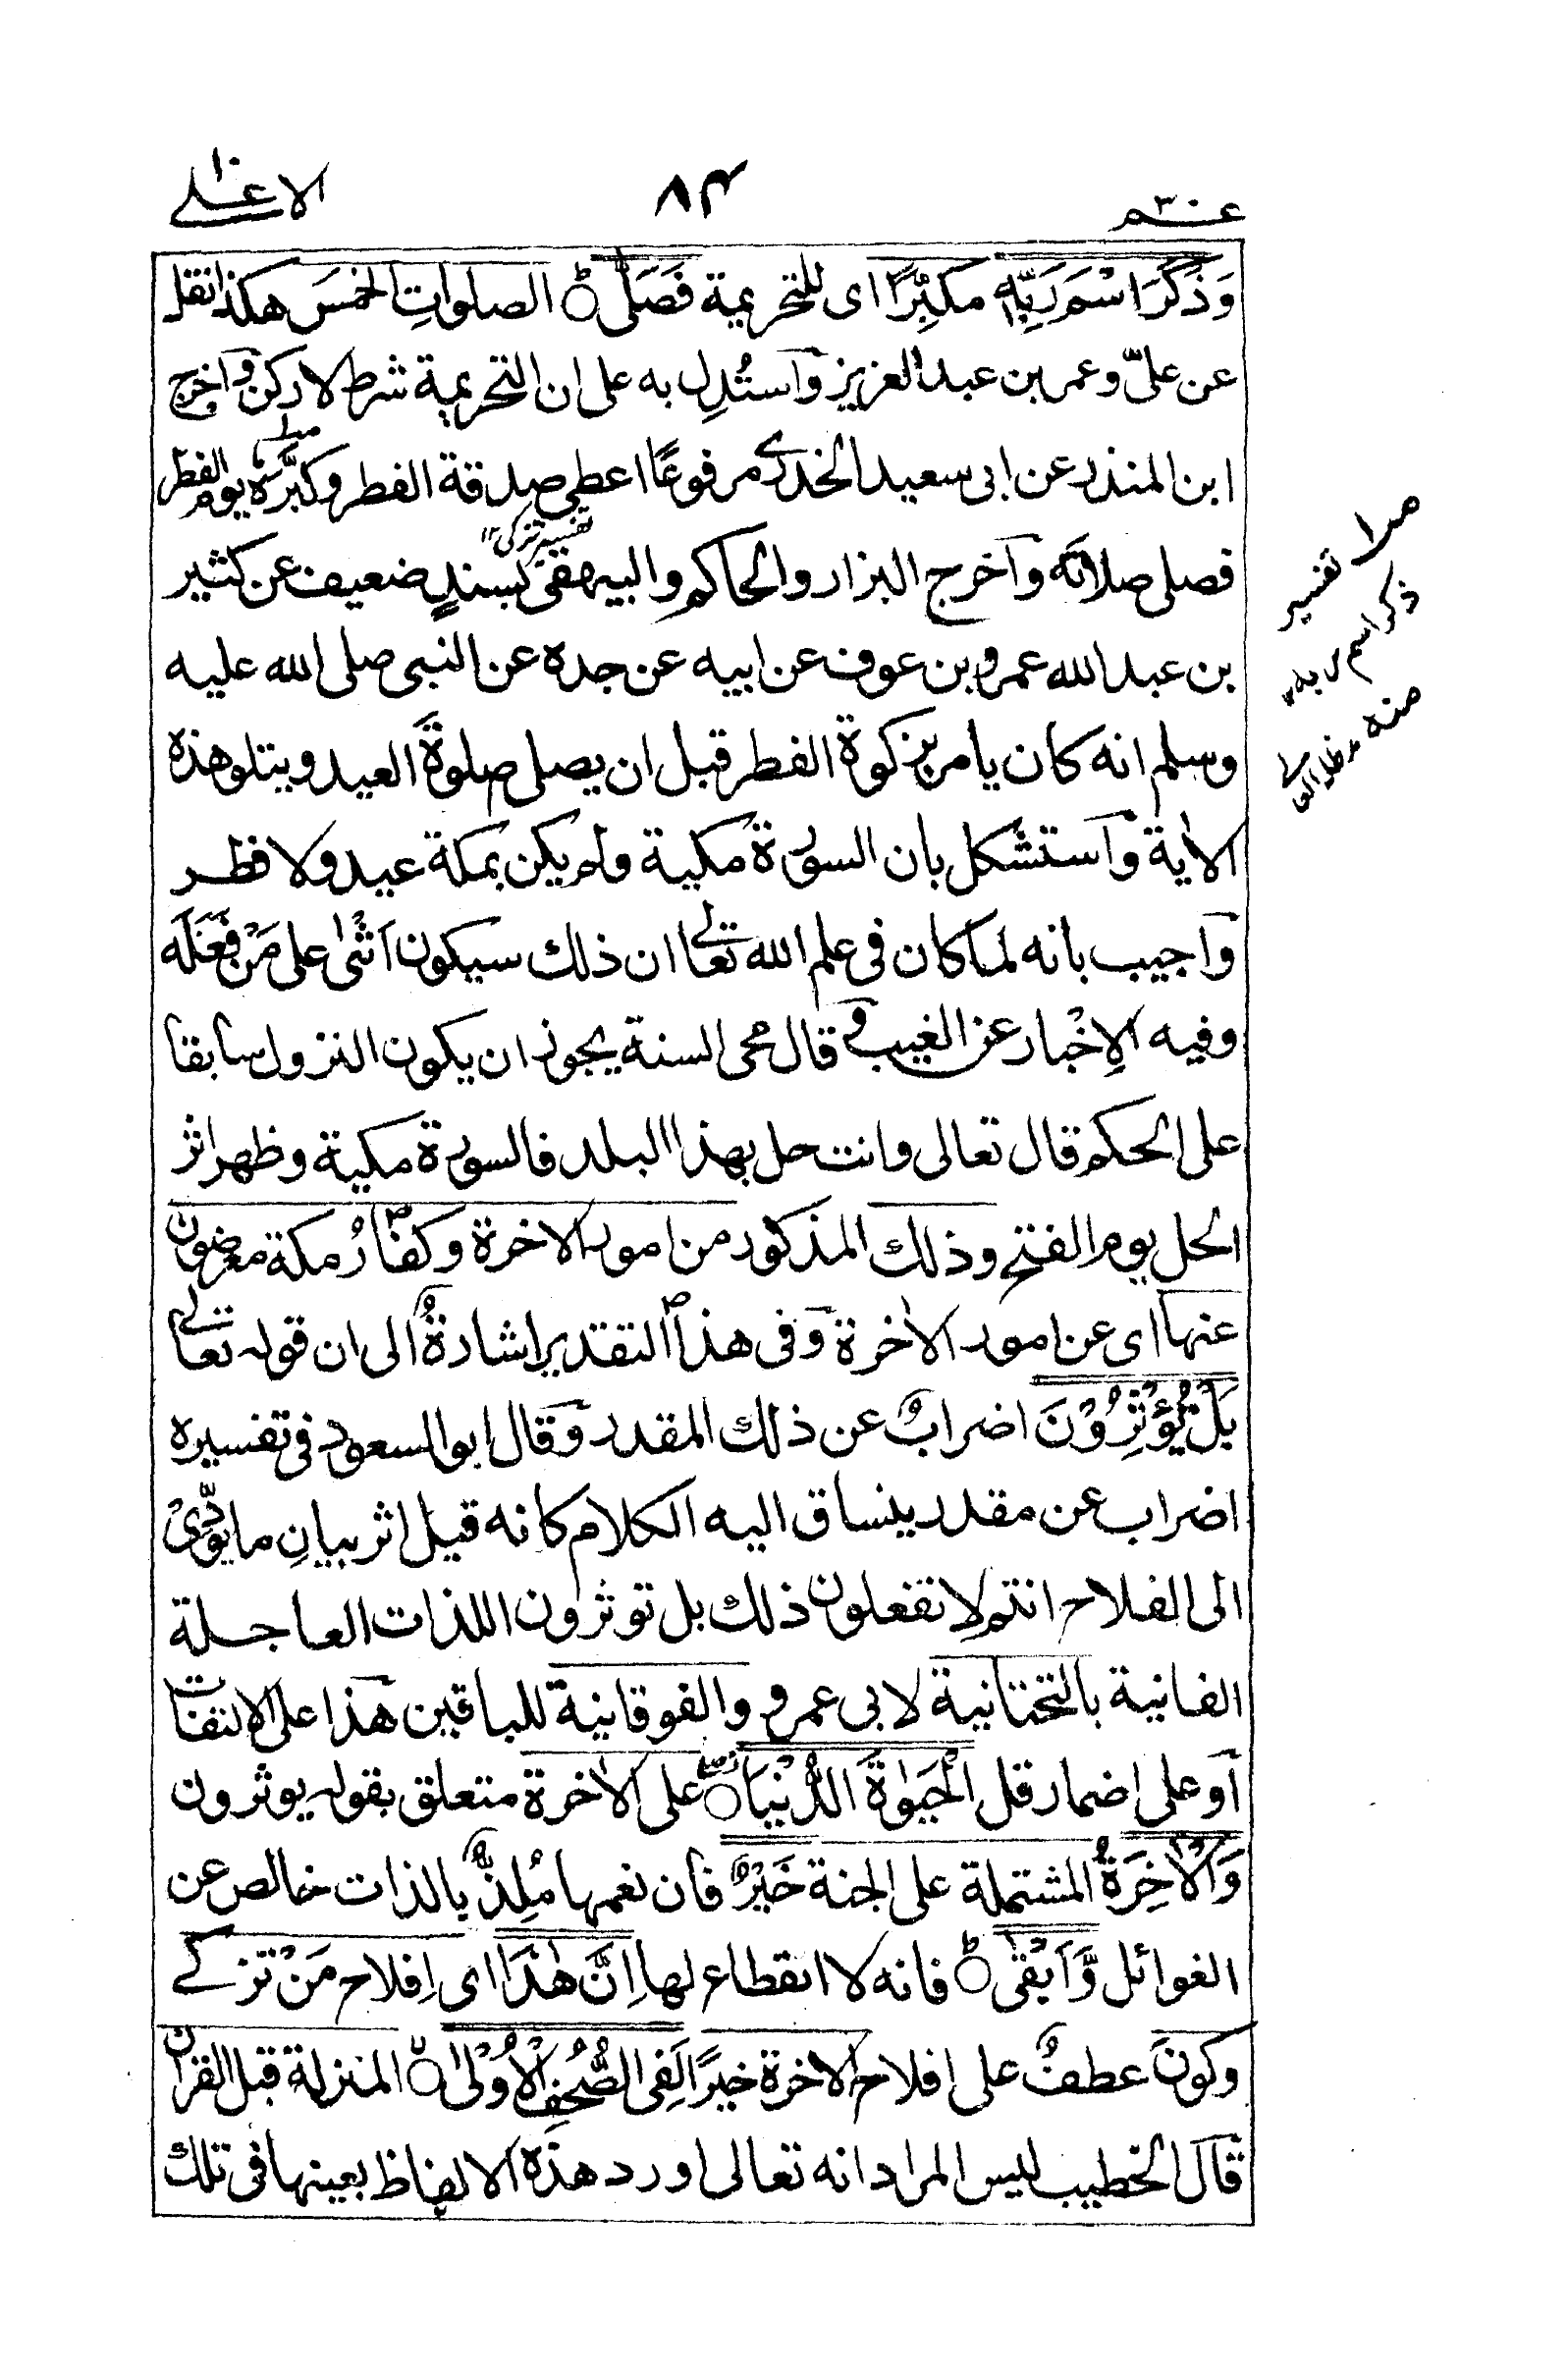 عم ٣٠
٨٤
الاعلى
وَذَكَرَ اسْمَ رَبِّهٖ مكبِّرًا اى للتحريمة فَصَلّٰىؕ الصلواتِ الخمسَ هكذا نقل
عن علىّ وعمر بن عبد العزيز وَاستُدِل به على ان التحريمة شرط لا ركن واخرج
ابن المنذر عن ابى سعيد الخدرى مرفوعًا اعطى صدقة الفطر وكبَّره يوم الفطر
تفسير تزكى ١٢
فصلى صلاته وآخرج البزار والحاكم والبيهقى بسندٍ ضعيف عن كثير
بن عبد الله عمرو بن عوف عن ابيه عن جده عن النبى صلى الله عليه
وسلم انه كان يامر بزكوة الفطر قبل ان يصلى صلوةَ العيد ويتلو هذه
الاٰية وآستشكل بان السورة مكية ولم يكن بمكة عيد ولا فطر
وآجيب بانه لما كان فى علم الله تعالى ان ذلك سيكون اَثْنٰى على مَنْ فَعَلَه
وفيه الاِخْبار عن الغيب و قال محى السنة يجوز ان يكون النزول سابقا
على الحكم قال تعالى وانت حل بهذا البلد فالسورة مكية وظهر اثر
الحل يوم الفتح وذلك المذكور من امور الاخرة وكفّارُ مكة معرضون
عنها اى عن امور الاٰخرة وَفى هذا التقدير اشارةٌ الى ان قوله تعالى
بَلْ يُؤْثِرُوْنَ اضرابٌ عن ذلك المقدر وَقال ابو السعود فى تفسيره
اضراب عن مقدر ينساق اليه الكلام كانه قيل اثر بيانِ ما يؤدّى
الى الفلاح انتم لا تفعلون ذلك بل توثرون اللذات العاجلة
الفانية بالتحتانية لابى عمرو والفوقانية للباقين هَذا على الالتفات
اَو على اضمار قل الْحَيٰوةَ الدُّنْيَا على الاٰخرة متعلق بقوله يوثرون
وَالْاٰخِرَةُ المشتملة على الجنة خَيْرٌ فان نعمها مُلِذٌّ بالذات خالص عن
الغوائل وَّاَبْقٰىؕ فانه لا انقطاع لها اِنَّ هٰذَا اى اِفلاح مَنْ تزكے
وكونَ عطفٌ على افلاح الاخرة خيرًا لَفِى الصُّحُفِ الْاُوْلٰىۙ المنزلة قبل القرآن
قآل الخطيب ليس المراد انه تعالى اورد هذه الالفاظ بعينها فى تلك
تفسير
ذكر اسم ربه
منه مدظله العالى